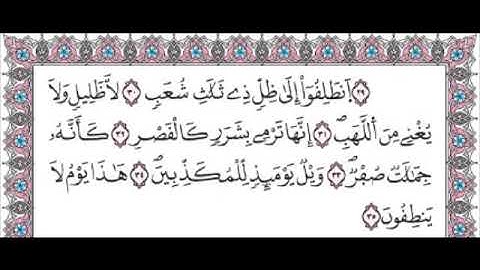 ۝٢٩ اَ۪نطَلِقُوٓاْ إِلَىٰ ظِلّٖ ذِے ثَلَٰثِ شُعَبٖ ۝٣٠ لَّا ظَلِيلٖ وَلَا
يُغْنِے مِنَ اَللَّهَبِۖ ۝٣١ إِنَّهَا تَرْمِے بِشَرَرٖ كَالْقَصْرِ ۝٣٢ كَأَنَّهُۥ
جِمَٰلَٰتٞ صُفْرٞۖ ۝٣٣ وَيْلٞ يَوْمَئِذٖ لِّلْمُكَذِّبِينَۖ ۝٣٤ هَٰذَا يَوْمُ لَا
يَنطِقُونَ ۝٣٥